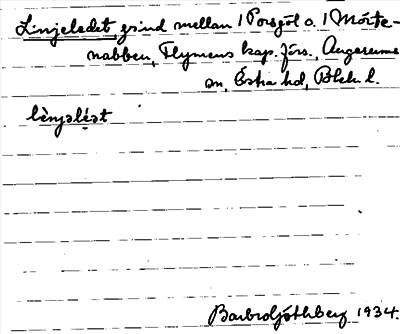 Linjeledet grind mellan 1 Porsgöl o. 1 Mörte-
nabben, Flymens kap. förs., Augerums
sn, Östra hd, Blek. l.
lìnjəlést
Barbro Ljöthberg 1934.